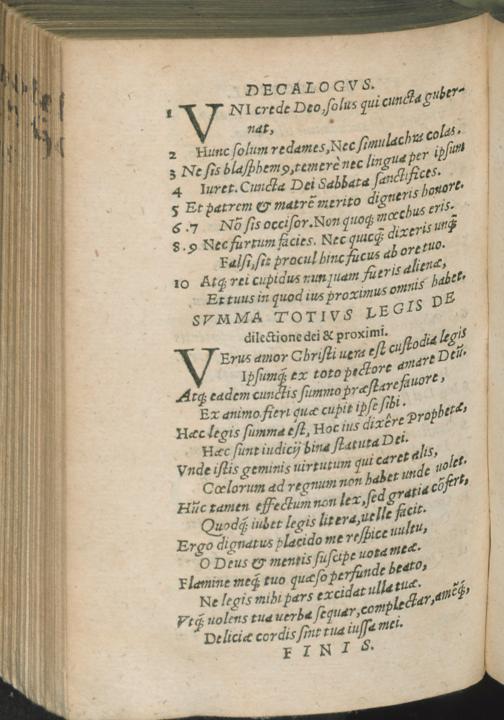 DECALOGVS.
1 VNI crede Deo, solus qui cuncta guber-
nat,
2 Hunc solum redames, Nec simulachra colas.
3 Ne sis blasphemꝰ, temerè nec lingua per ipsum
4 Iuret. Cuncta Dei Sabbata sanctifices.
5 Et patrem & matrē merito digneris honore.
6.7 Nō sis occisor. Non quoq; mœchus eris.
8.9 Nec furtum facies. Nec quicq̄ dixeris unq̄
Falsi, sit procul hinc fucus ab ore tuo.
10 Atq; rei cupidus nunquam fueris alienæ,
Et tuus in quod ius proximus omnis habet.
SVMMA TOTIVS LEGIS DE
dilectione dei & proximi.
VErus amor Christi uera est custodia legis
Ipsumq; ex toto pectore amare Deū.
Atq; eadem cunctis summo præstare fauore,
Ex animo fieri quæ cupit ipse sibi.
Hæc legis summa est, Hoc ius dixêre Prophetæ,
Hæc sunt iudicij bina statuta Dei.
Vnde istis geminis uirtutum qui caret alis,
Cœlorum ad regnum non habet unde uolet.
Hūc tamen effectum non lex, sed gratia cōfert,
Quodq; iubet legis litera, uelle facit.
Ergo dignatus placido me respice uultu,
O Deus & mentis suscipe uota meæ.
Flamine meq; tuo quæso perfunde beato,
Ne legis mihi pars excidat ulla tuæ.
Vtq; uolens tua uerba sequar, complectar, amēq;,
Deliciæ cordis sint tua iussa mei.
FINIS.